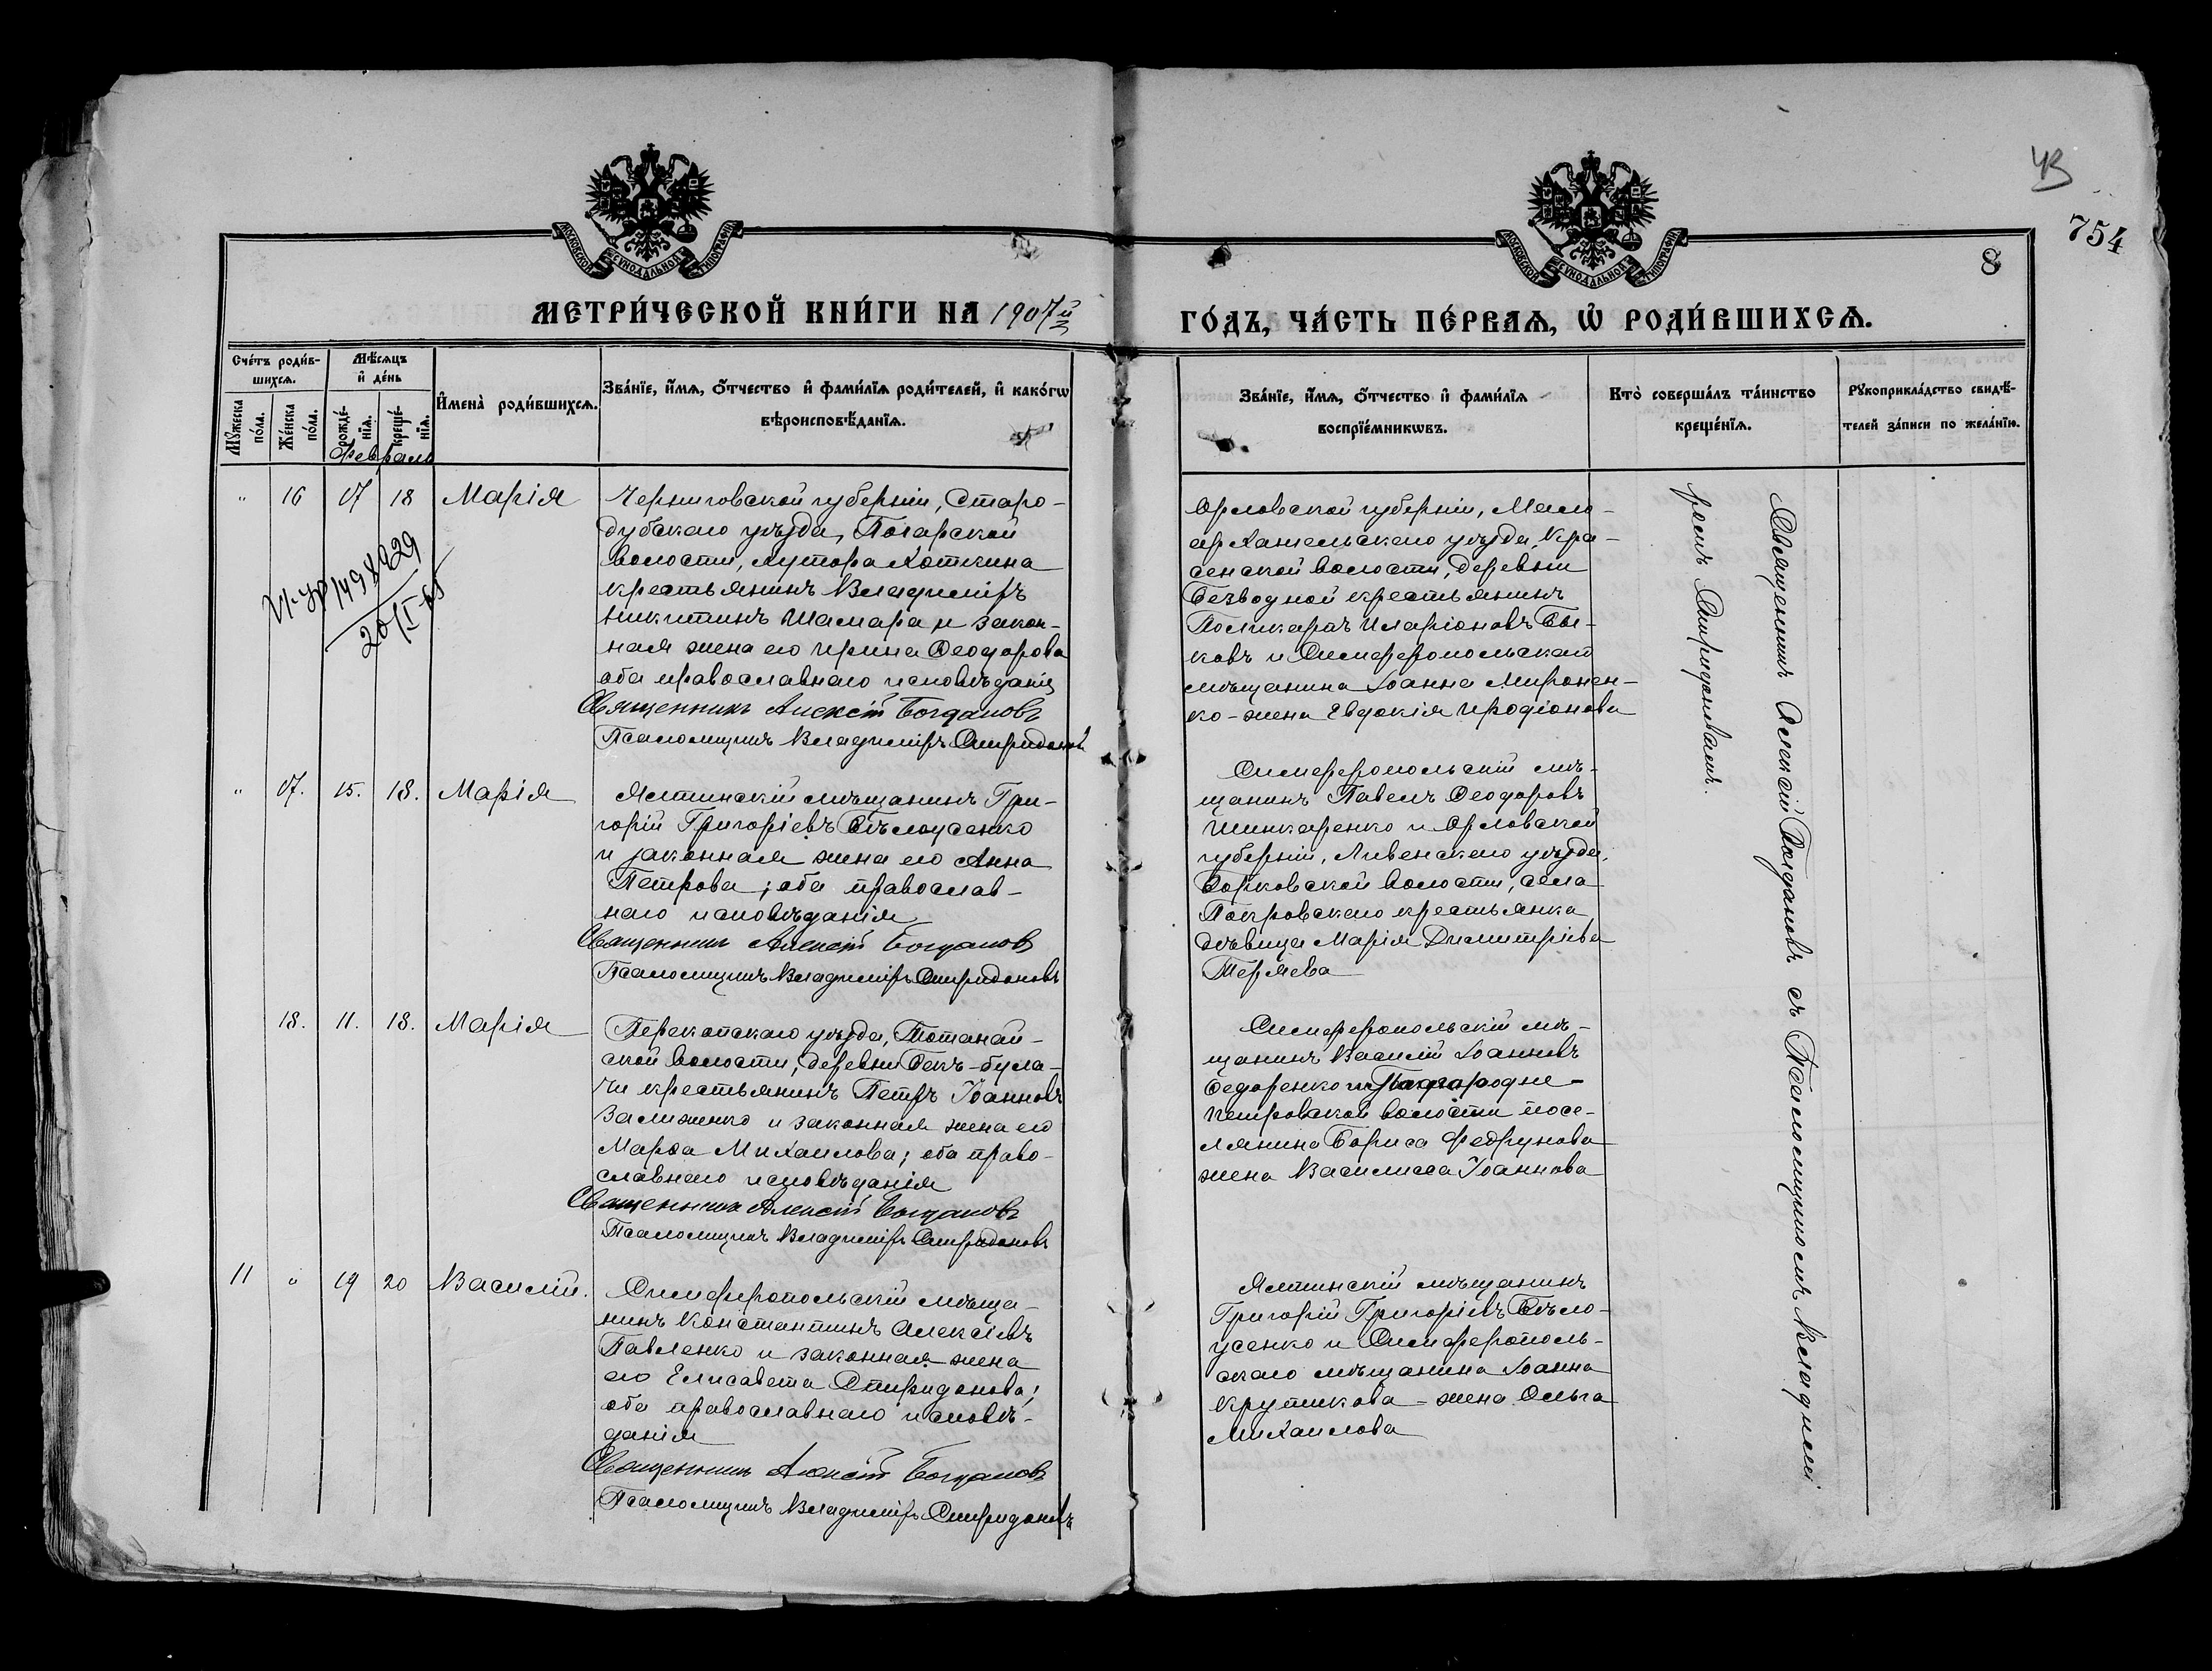 ЧВ
754
8
МОСКОВСКОЙ СѴНОДАЛЬНОЙ ТИПОГРАФІИ
МОСКОВСКОЙ СѴНОДАЛЬНОЙ ТИПОГРАФІИ
МЕТРИ́ЧЕСКОЙ КНИ́ГИ НА 1907й
ГО́ДЪ, ЧА́СТЬ ПЕ́РВАѦ, Ѡ҆ РОДИ́ВШИХСѦ.
Счётъ роди́в-
шихсѧ.
Мѣ́сѧцъ
и҆ де́нь
Мꙋ́жеска по́ла.
Же́нска по́ла.
рожде́-нїѧ.
креще́-нїѧ.
И҆мена̀ роди́вшихсѧ.
Зва́нїе, и҆́мѧ, ѻ҆́тчество и҆ фами́лїѧ роди́телей, и҆ како́гѡ
вѣроисповѣ́данїѧ.
Зва́нїе, и҆́мѧ, ѻ҆́тчество и҆ фами́лїѧ
воспрїе́мникѡвъ.
Кто̀ соверша́лъ та́инство
креще́нїѧ.
Рꙋкоприкла́дство свидѣ́-
телей за́писи по жела́нїю.
Февраль
" 16 17 18 Марія
Черниговской губерніи, Старо-
дубскаго уѣзда, Погарской
волости, хутора Хоткина
крестьянинъ Владиміръ
Никитинъ Шамара и закон-
ная жена его Ирина Ѳеодорова
оба православнаго исповѣданія
Священникъ Алексій Богдановъ
Псаломщикъ Владиміръ Спиридоновъ
Орловской губерніи, Мало-
архангельскаго уѣзда, Кра-
сенской волости, деревни
Безводной крестьянинъ
Поликарпъ Иларіоновъ Бы-
ковъ и Симферопольскаго
мѣщанина Іоанна Миронен-
ко - жена Евдокія Иродіонова
1498929
" 17. 15. 18. Марія
Ялтинскій мѣщанинъ Гри-
горій Григоріевъ Бѣлоусенко
и законная жена его Анна
Петрова; оба православ-
наго исповѣданія
Священникъ Алексій Богдановъ
Псаломщикъ Владиміръ Спиридоновъ
Симферопольскій мѣ-
щанинъ Павелъ Ѳеодоровъ
Шинкаренко и Орловской
губерніи, Ливенскаго уѣзда,
Борковской волости, села
Покровскаго крестьянка,
дѣвица Марія Димитріева
Теряева
18. 11. 18. Марія
Перекопскаго уѣзда, Тотанай-
ской волости, деревни Бекъ-Була-
чи крестьянинъ Петръ Іоанновъ
Залиженко и законная жена его
Марѳа Михаилова; оба право-
славнаго исповѣданія
Священникъ Алексій Богдановъ
Псаломщикъ Владиміръ Спиридоновъ
Симферопольскій мѣ-
щанинъ Василій Іоанновъ
Федоренко и
Петровской волости посе-
лянина Бориса Федрунова
жена Василисса Іоаннова
11 " 19 20 Василій.
Симферопольскій мѣща-
нинъ Константинъ Алексіевъ
Павленко и законная жена
его Елисавета Спиридонова;
оба православнаго исповѣ-
данія
Священникъ Алексій Богдановъ
Псаломщикъ Владиміръ Спиридоновъ
Ялтинскій мѣщанинъ
Григорій Григоріевъ Бѣло-
усенко и Симферополь-
скаго мѣщанина Іоанна
Крутикова - жена Ольга
Михаилова
Священникъ Алексій Богдановъ съ Псаломщикомъ Владимі
ромъ Спиридоновымъ.